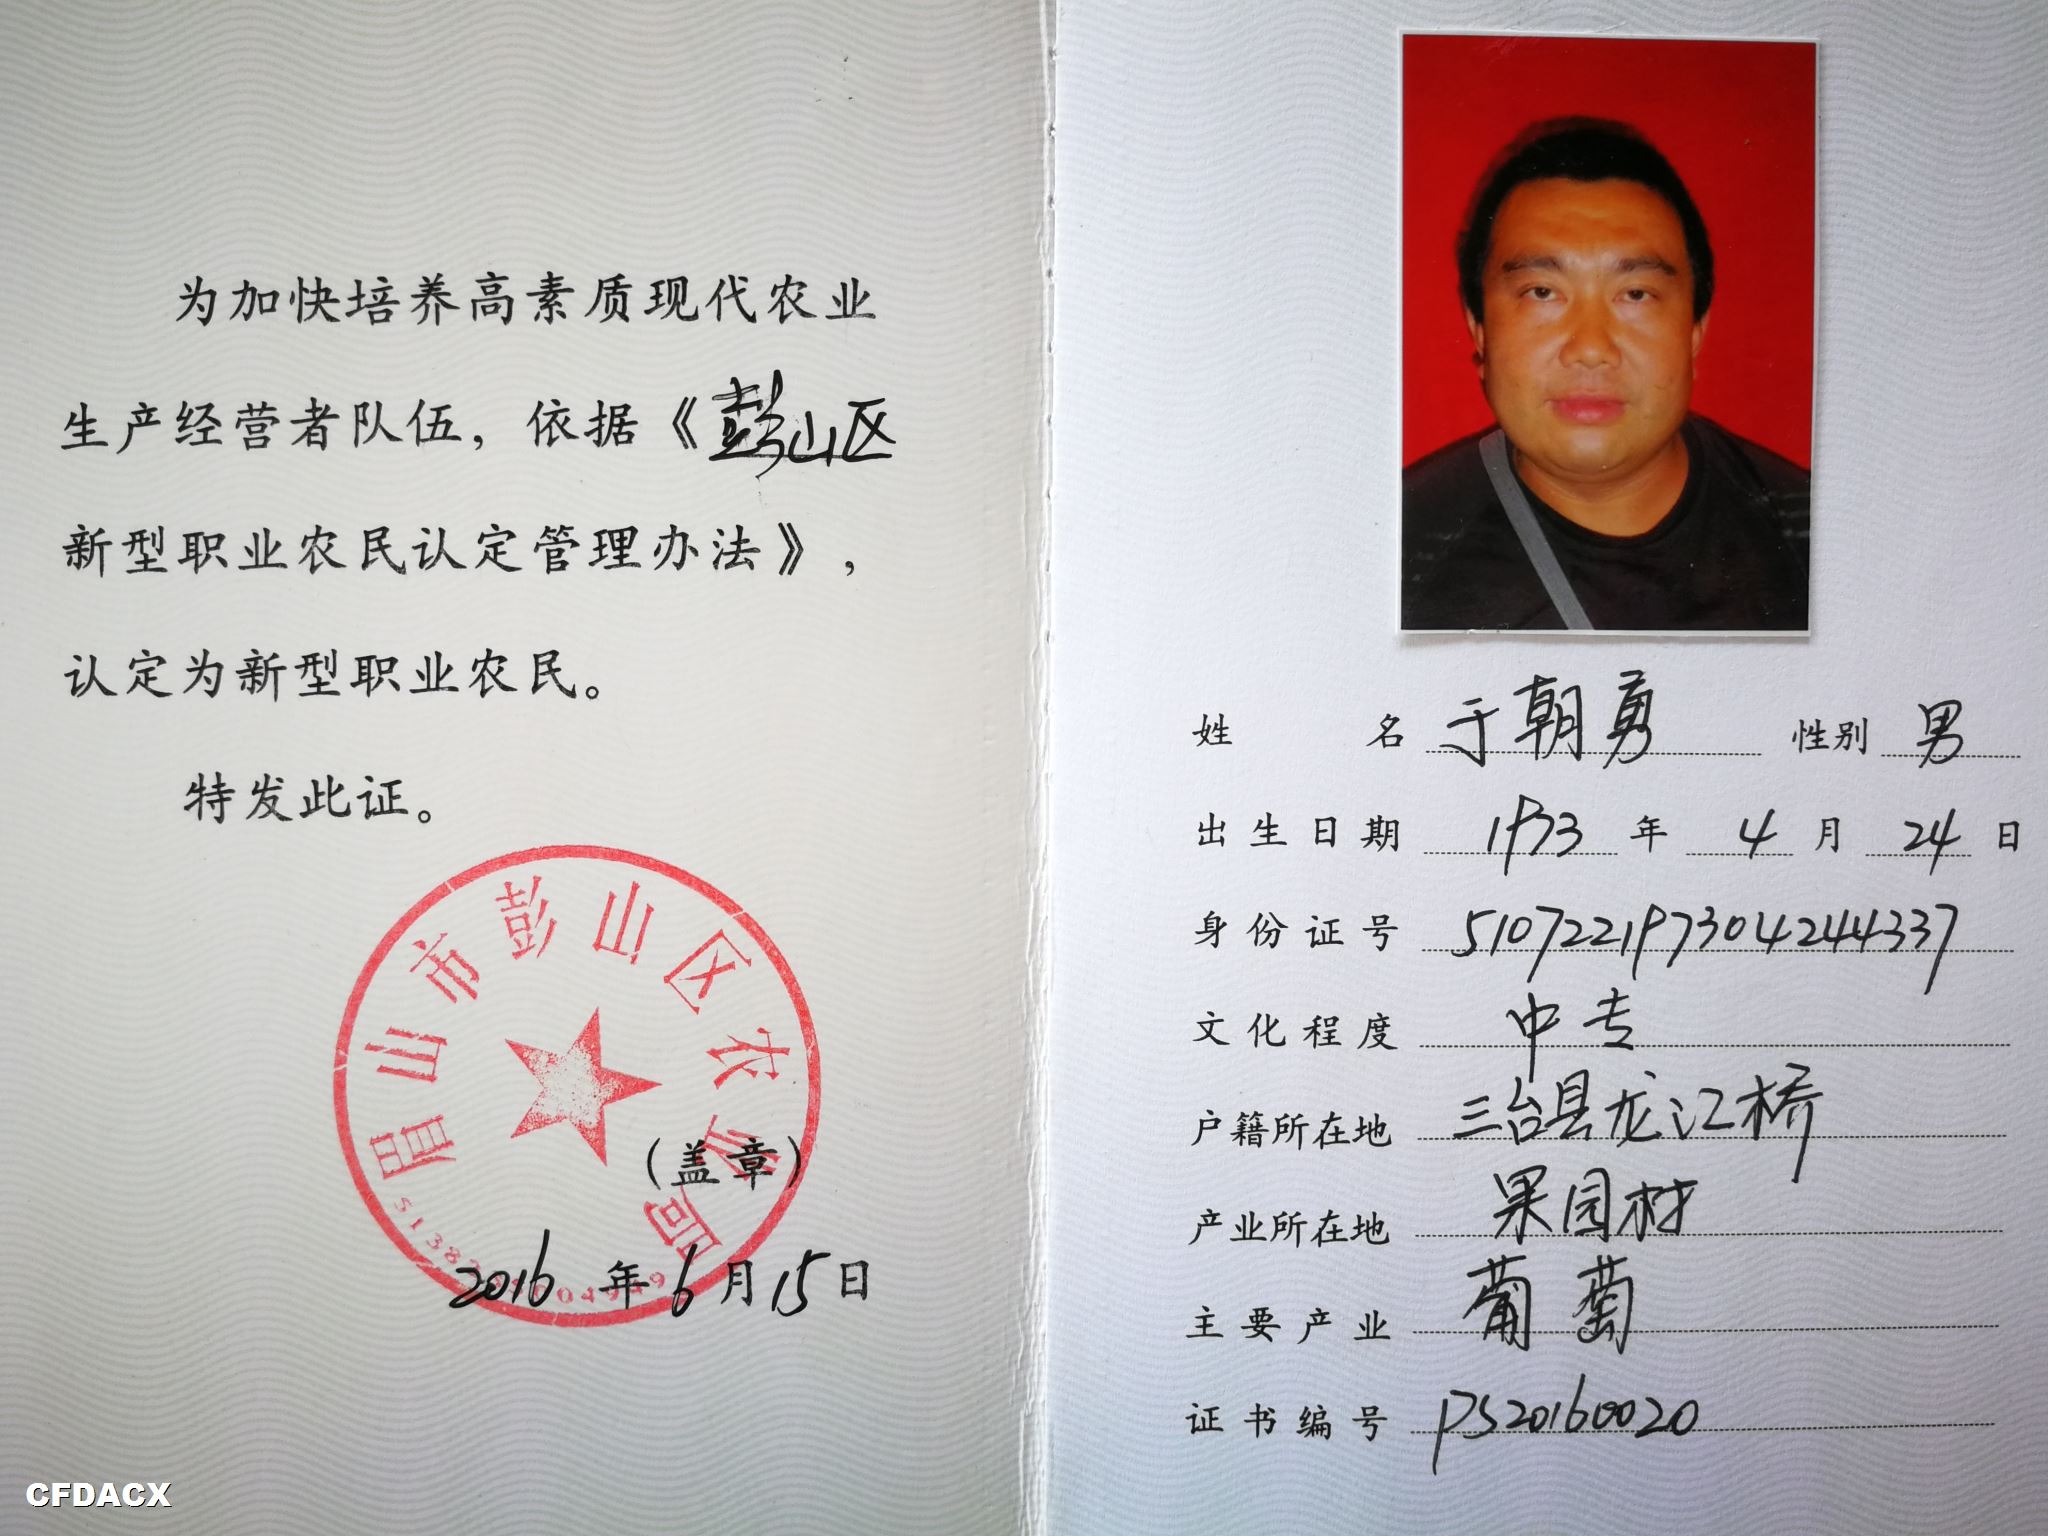 为加快培养高素质现代农业
生产经营者队伍，依据《彭山区
新型职业农民认定管理办法》，
认定为新型职业农民。
特发此证。
眉山市彭山区农业局
（盖章）
2016年6月15日
姓名 于朝勇 性别 男
出生日期 1973年4月24日
身份证号 510722197304244337
文化程度 中专
户籍所在地 三台县龙江桥
产业所在地 果园村
主要产业 葡萄
证书编号 PS20160020
CFDACX